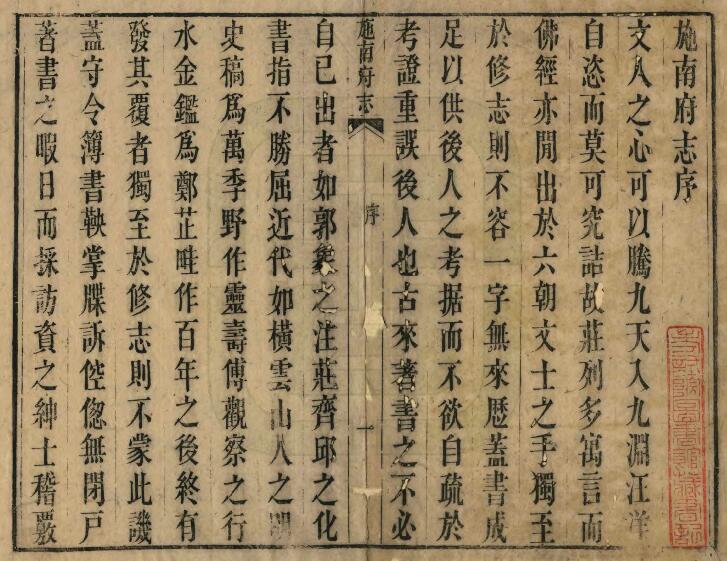 施南府志序
文人之心可以騰九天入九淵汪洋
自恣而莫可究詰故莊列多寓言而
佛經亦閒出於六朝文士之手獨至
於修志則不容一字無來歷蓋書成
足以供後人之考据而不欲自疏於
考證重誤後人也古來著書之不必
施南府志
序
一
自已出者如郭象之注莊齊邱之化
書指不勝屈近代如橫雲山人之明
史稿爲萬季野作靈壽傅觀察之行
水金鑑爲鄭芷畦作百年之後終有
發其覆者獨至於修志則不蒙此譏
蓋守令簿書鞅掌牒訴倥傯無閉戶
著書之暇日而採訪資之紳士稽覈